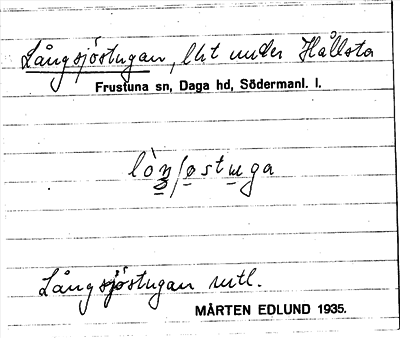 Långsjöstugan, lht under Hållsta
Frustuna sn, Daga hd, Södermanl. l.
Långsjöstugan utl.
MÅRTEN EDLUND 1935.